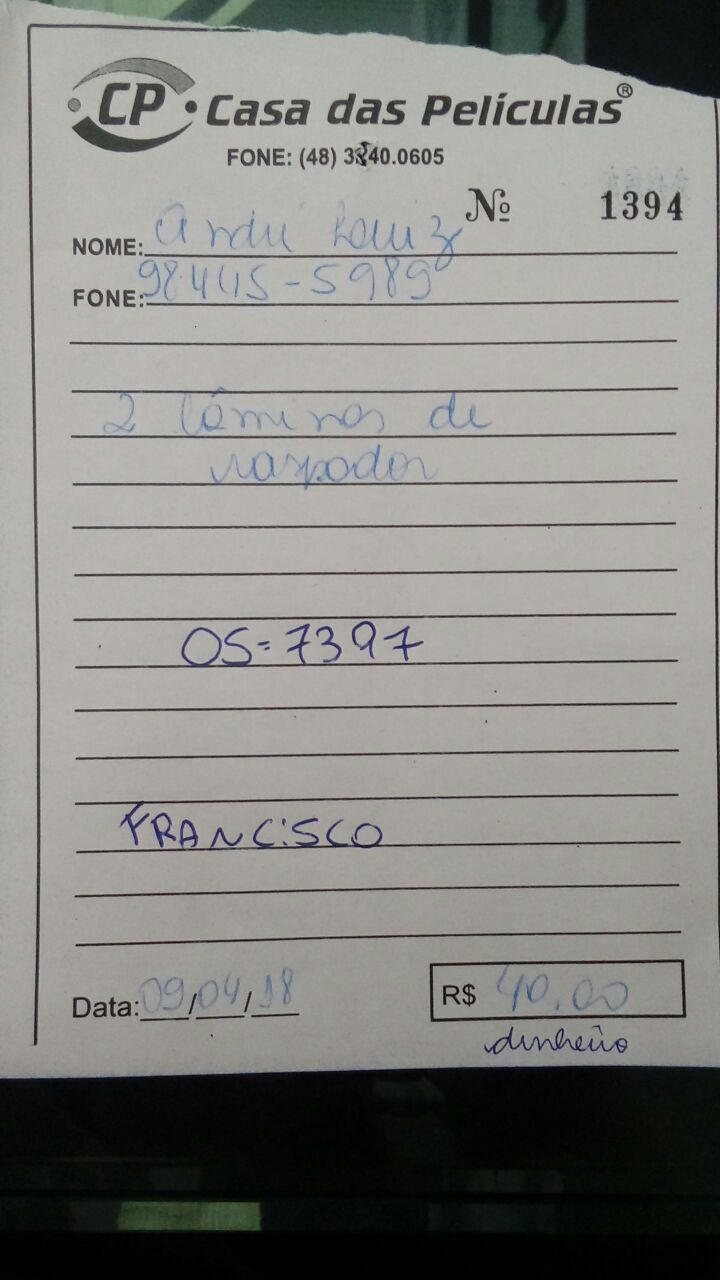 CP Casa das Películas®
FONE: (48) 3240.0605
Nº 1394
NOME: André Luiz
FONE: 98415-5989
2 lâminas de
raspador
OS=7397
FRANCISCO
Data: 09/04/18 R$ 40,00
dinheiro